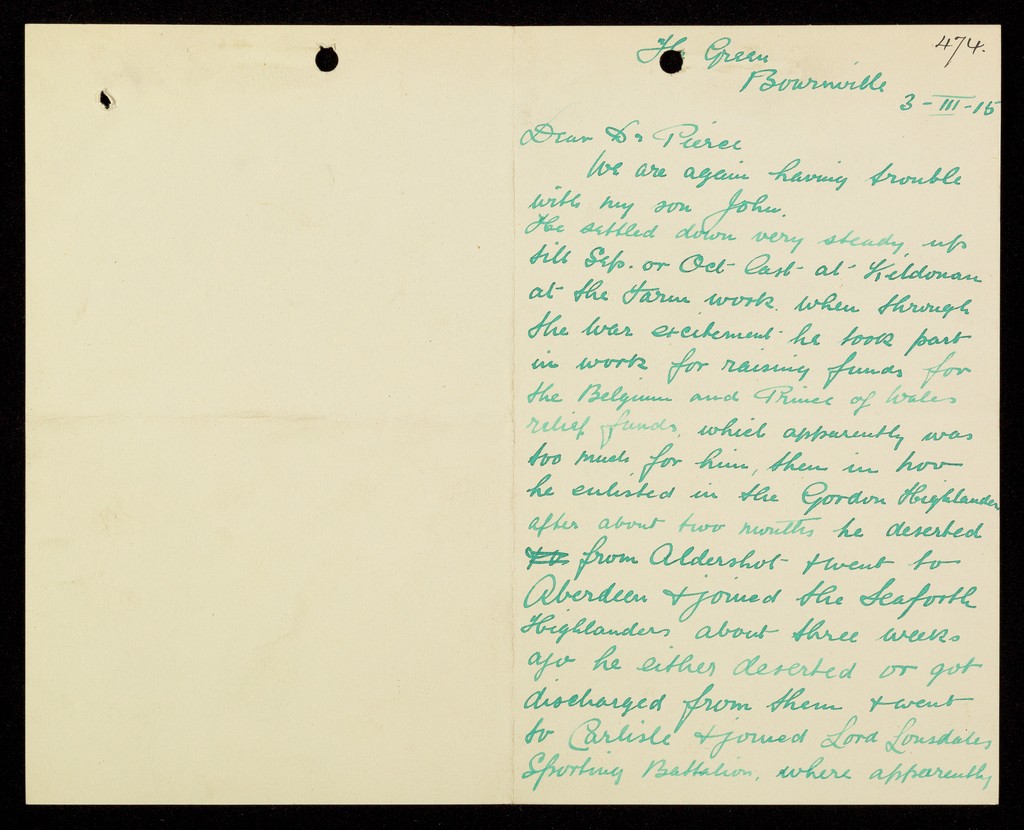 474.
The Green
Bournville
3-III-15
Dear Dr Pierce
We are again having trouble
with my son John.
He settled down very steady, up
till Sep. or Oct last at Kildonan
at the Farm work. when through
the War excitement he took part
in work for raising funds for
the Belgium and Prince of Wales
relief funds, which apparently was
too much for him, then in nov
he enlisted in the Gordon Highlander
after about two months he deserted
from Aldershot & went to
Aberdeen & joined the Seaforth
Highlanders about three weeks
ago he either deserted or got
discharged from them & went
to Carlisle & joined Lord Lonsdales
Sporting Battalion, where apparently